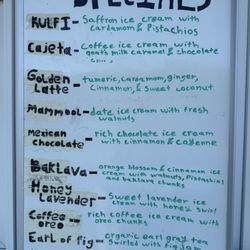 SPECIALS
KULFI - Saffron ice cream with
cardamom & Pistachios
Cajeta - Coffee ice cream with
goats milk caramel & chocolate
Golden Latte - tumeric, cardamom, ginger,
cinnamon, & sweet coconut
Mammool - date ice cream with fresh
walnuts
mexican chocolate - rich chocolate ice cream
with cinnamon & cayenne
Baklava - orange blossom & cinnamon ice
cream with walnuts, Pistachios
and baklava chunks
Honey Lavender - Sweet lavender ice
cream with honey swirl
Coffee oreo - rich coffee ice cream with
oreo chunks
Earl of fig - organic earl gray
swirled with fig